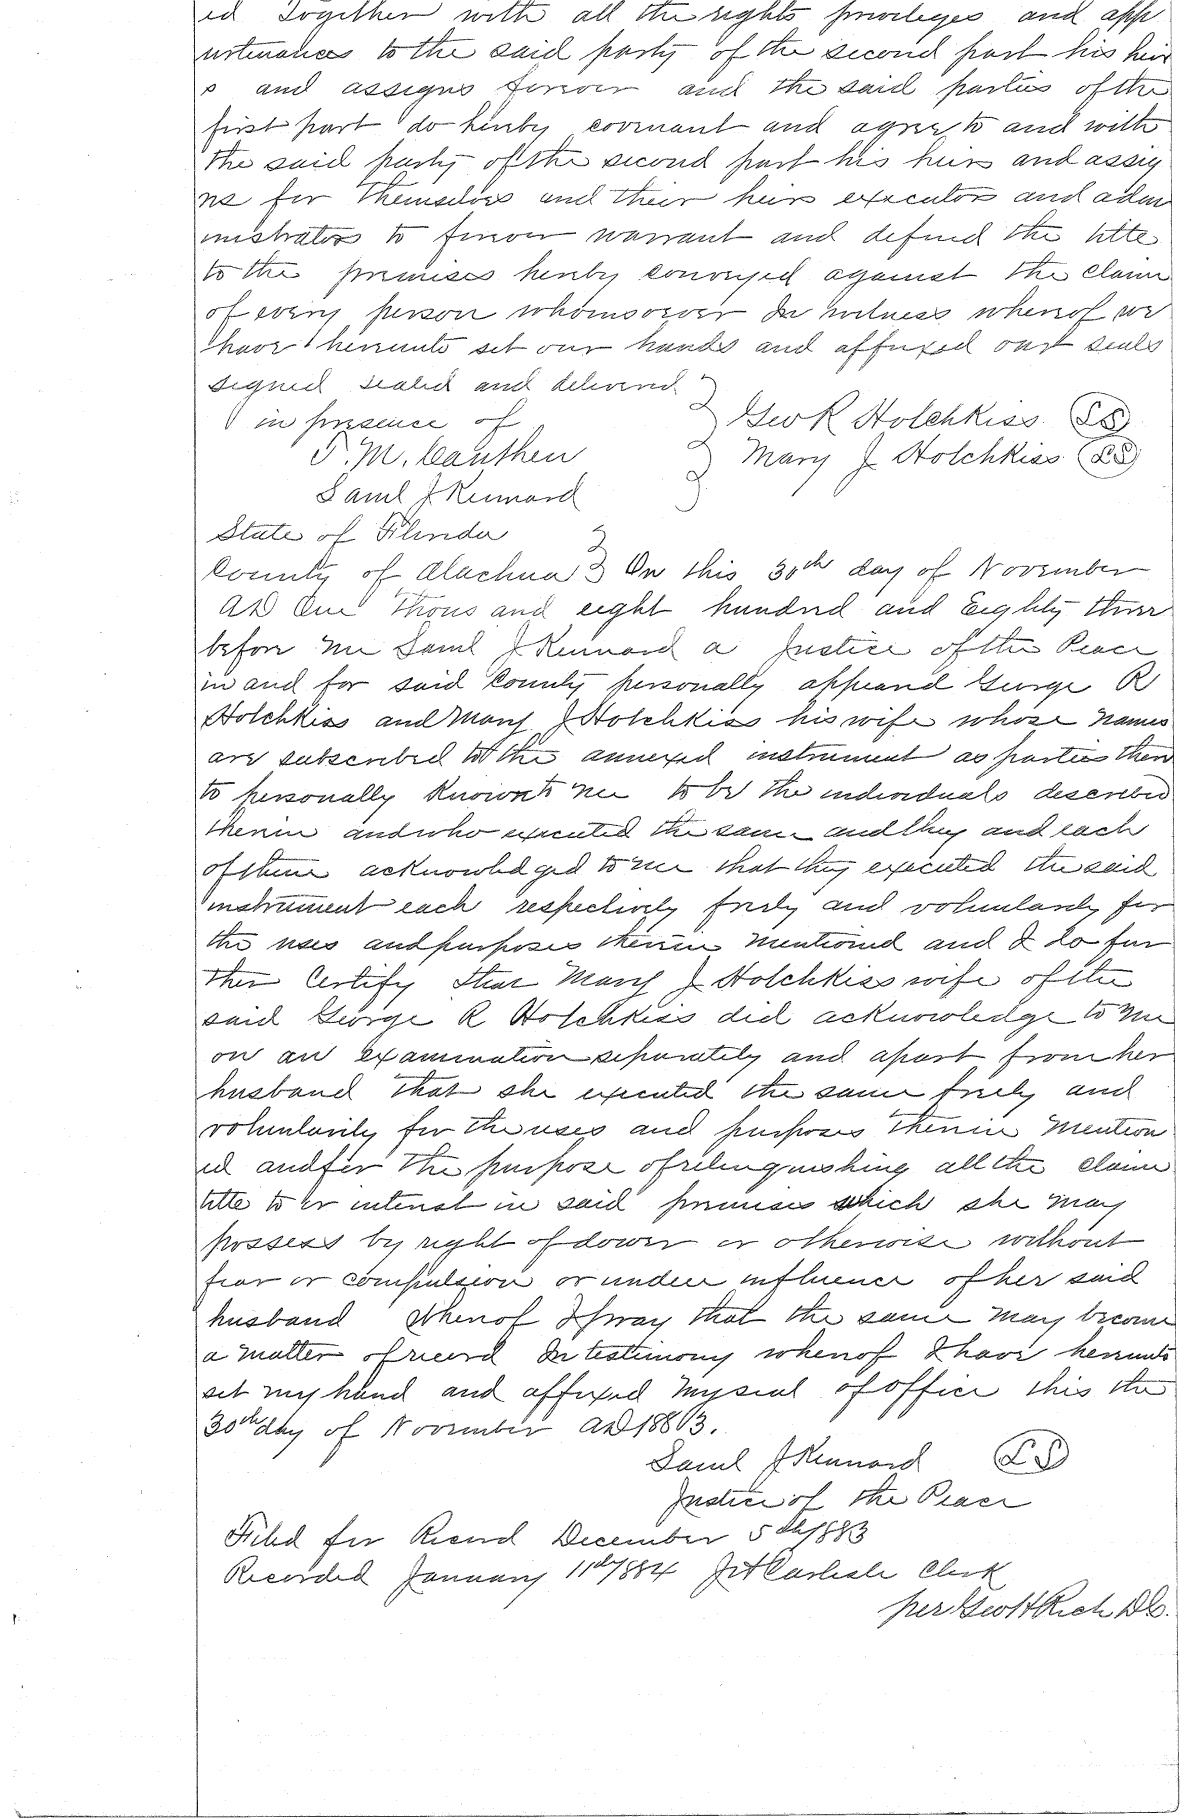 ed Together with all the rights privileges and app
urtenances to the said party of the second part his heir
s and assigns forever and the said parties of the
first part do hereby covenant and agree to and with
the said party of the second part his heirs and assig
ns for themselves and their heirs executors and adm
inistrators to forever warrant and defend the title
to the premises hereby conveyed against the claim
of every person whomsoever In witness whereof we
have hereunto set our hands and affixed our seals
signed sealed and delivered
in presence of Geo R Hotchkiss LS
T. M. Cauthen Mary J Hotchkiss LS
Saml J Kennard
State of Florida
County of Alachua } On this 30th day of November
AD One Thousand eight hundred and Eighty three
before me Saml J Kennard a Justice of the Peace
in and for said County personally appeared George R
Hotchkiss and Mary J Hotchkiss his wife whose names
are subscribed to the annexed instrument as parties there
to personally Known to me to be the individuals described
therein and who executed the same and they and each
of them acknowledged to me that they executed the said
instrument each respectively freely and voluntarily for
the uses and purposes therein mentioned and I do fur
ther Certify that Mary J Hotchkiss wife of the
said George R Hotchkiss did acknowledge to me
on an examination separately and apart from her
husband that she executed the same freely and
voluntarily for the uses and purposes therein mention
ed and for the purpose of relinquishing all the claim
title to or interest in said premises which she may
possess by right of dower or otherwise without
fear or compulsion or undue influence of her said
husband Whereof I pray that the same may become
a matter of record In testimony whereof I have hereunto
set my hand and affixed my seal of office this the
30th day of November AD 1883.
Saml J Kennard LS
Justice of the Peace
Filed for Record December 5th 1883
Recorded January 11th 1884 J A Carlisle Clerk
per Geo H Rich D C.